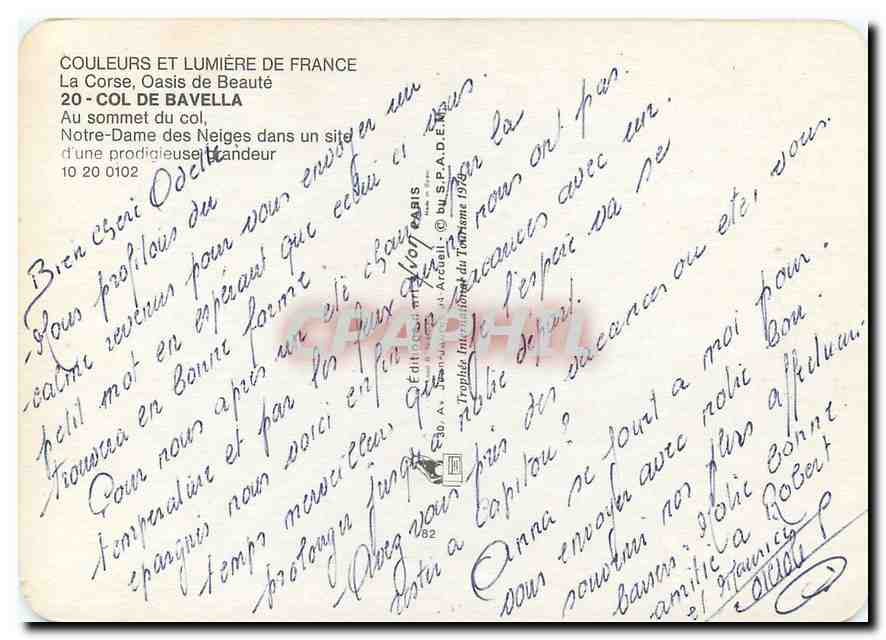 COULEURS ET LUMIÈRE DE FRANCE
La Corse, Oasis de Beauté
20 - COL DE BAVELLA
Au sommet du col,
Notre-Dame des Neiges dans un site
d'une prodigieuse grandeur
10 20 0102
Bien cheri Odette
Nous profitons du
calme revenus pour vous envoyer un
petit mot en espérant que celui ci vous
trouvera en bonne forme
Pour nous après un été chaud par la
temperature et par les feux qui ne nous ont pas
epargnés nous voici enfin en vacances avec un
temps merveilleux qui je l'espere va se
prolonger jusqu'a notre départ.
Avez vous pris des vacances ou etes vous
rester a Capitou?
Anna se joint a moi pour
vous envoyer avec notre bon
souvenir nos plus affectueux
baisers. Notre bonne
amitié a Robert
et Maurice
Editions d'art YVON PARIS
30, Av. Jean-Jaurès Arcueil - © by S.P.A.D.E.M.
Trophée International du Tourisme 1970
82
CPAPHIL